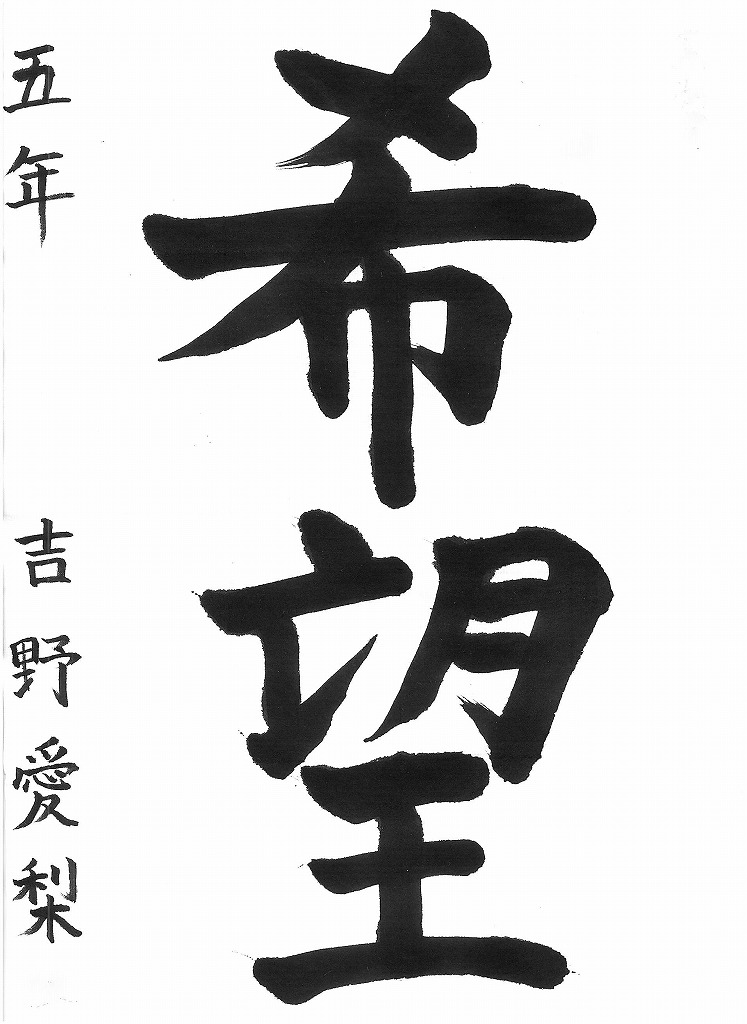 希望
五年 吉野愛梨